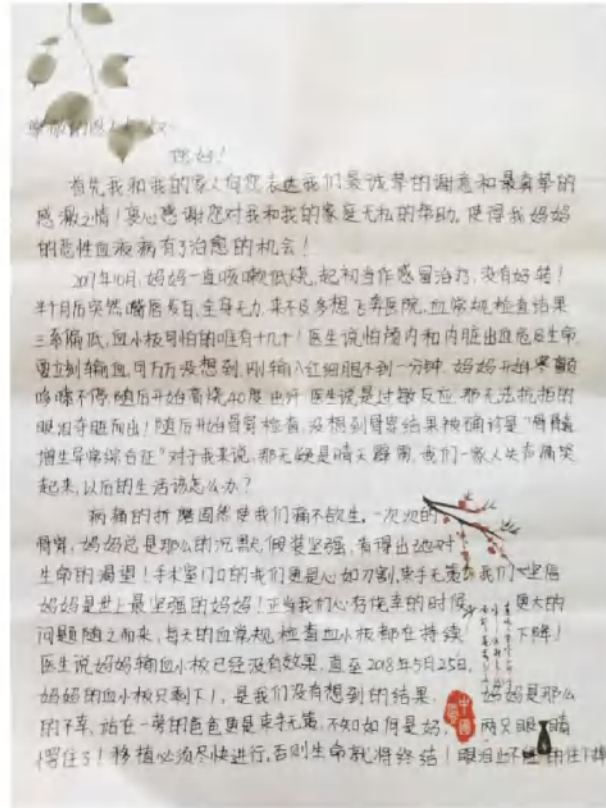 您好！
首先我和我的家人向您表达我们最诚挚的谢意和最真挚的
感激之情！衷心感谢您对我和我的家庭无私的帮助，使得我妈妈
的恶性血液病有了治愈的机会！
2017年10月，妈妈一直咳嗽低烧，起初当作感冒治疗，没有好转！
半个月后突然嘴唇发白，全身无力，来不及多想飞奔医院，血常规检查结果
三系偏低，血小板可怕的唯有十几个！医生说怕颅内和内脏出血危及生命，
要立刻输血，可万万没想到，刚输入红细胞不到一分钟，妈妈开始寒颤
哆嗦不停，随后开始高烧40度出汗，医生说是过敏反应，那无法抗拒的
眼泪夺眶而出！随后开始骨穿检查，没想到骨穿结果被确诊是“骨髓
增生异常综合征”对于我来说，那无疑是晴天霹雳，我们一家人失声痛哭
起来，以后的生活该怎么办？
病痛的折磨固然使我们痛不欲生，一次次的
骨穿，妈妈总是那么的沉默，假装坚强，看得出她对
生命的渴望！手术室门口的我们更是心如刀割，束手无策，我们坚信
妈妈是世上最坚强的妈妈！正当我们心有侥幸的时候，更大的
问题随之而来，每天的血常规检查血小板都在持续下降！
医生说妈妈输血小板已经没有效果，直至2018年5月25日，
妈妈的血小板只剩下1，是我们没有想到的结果，妈妈是那么
的不幸，站在一旁的爸爸更是束手无策，不知如何是好，两只眼睛
愣住了！移植必须尽快进行，否则生命就将终结！眼泪止不住的往下掉
中國